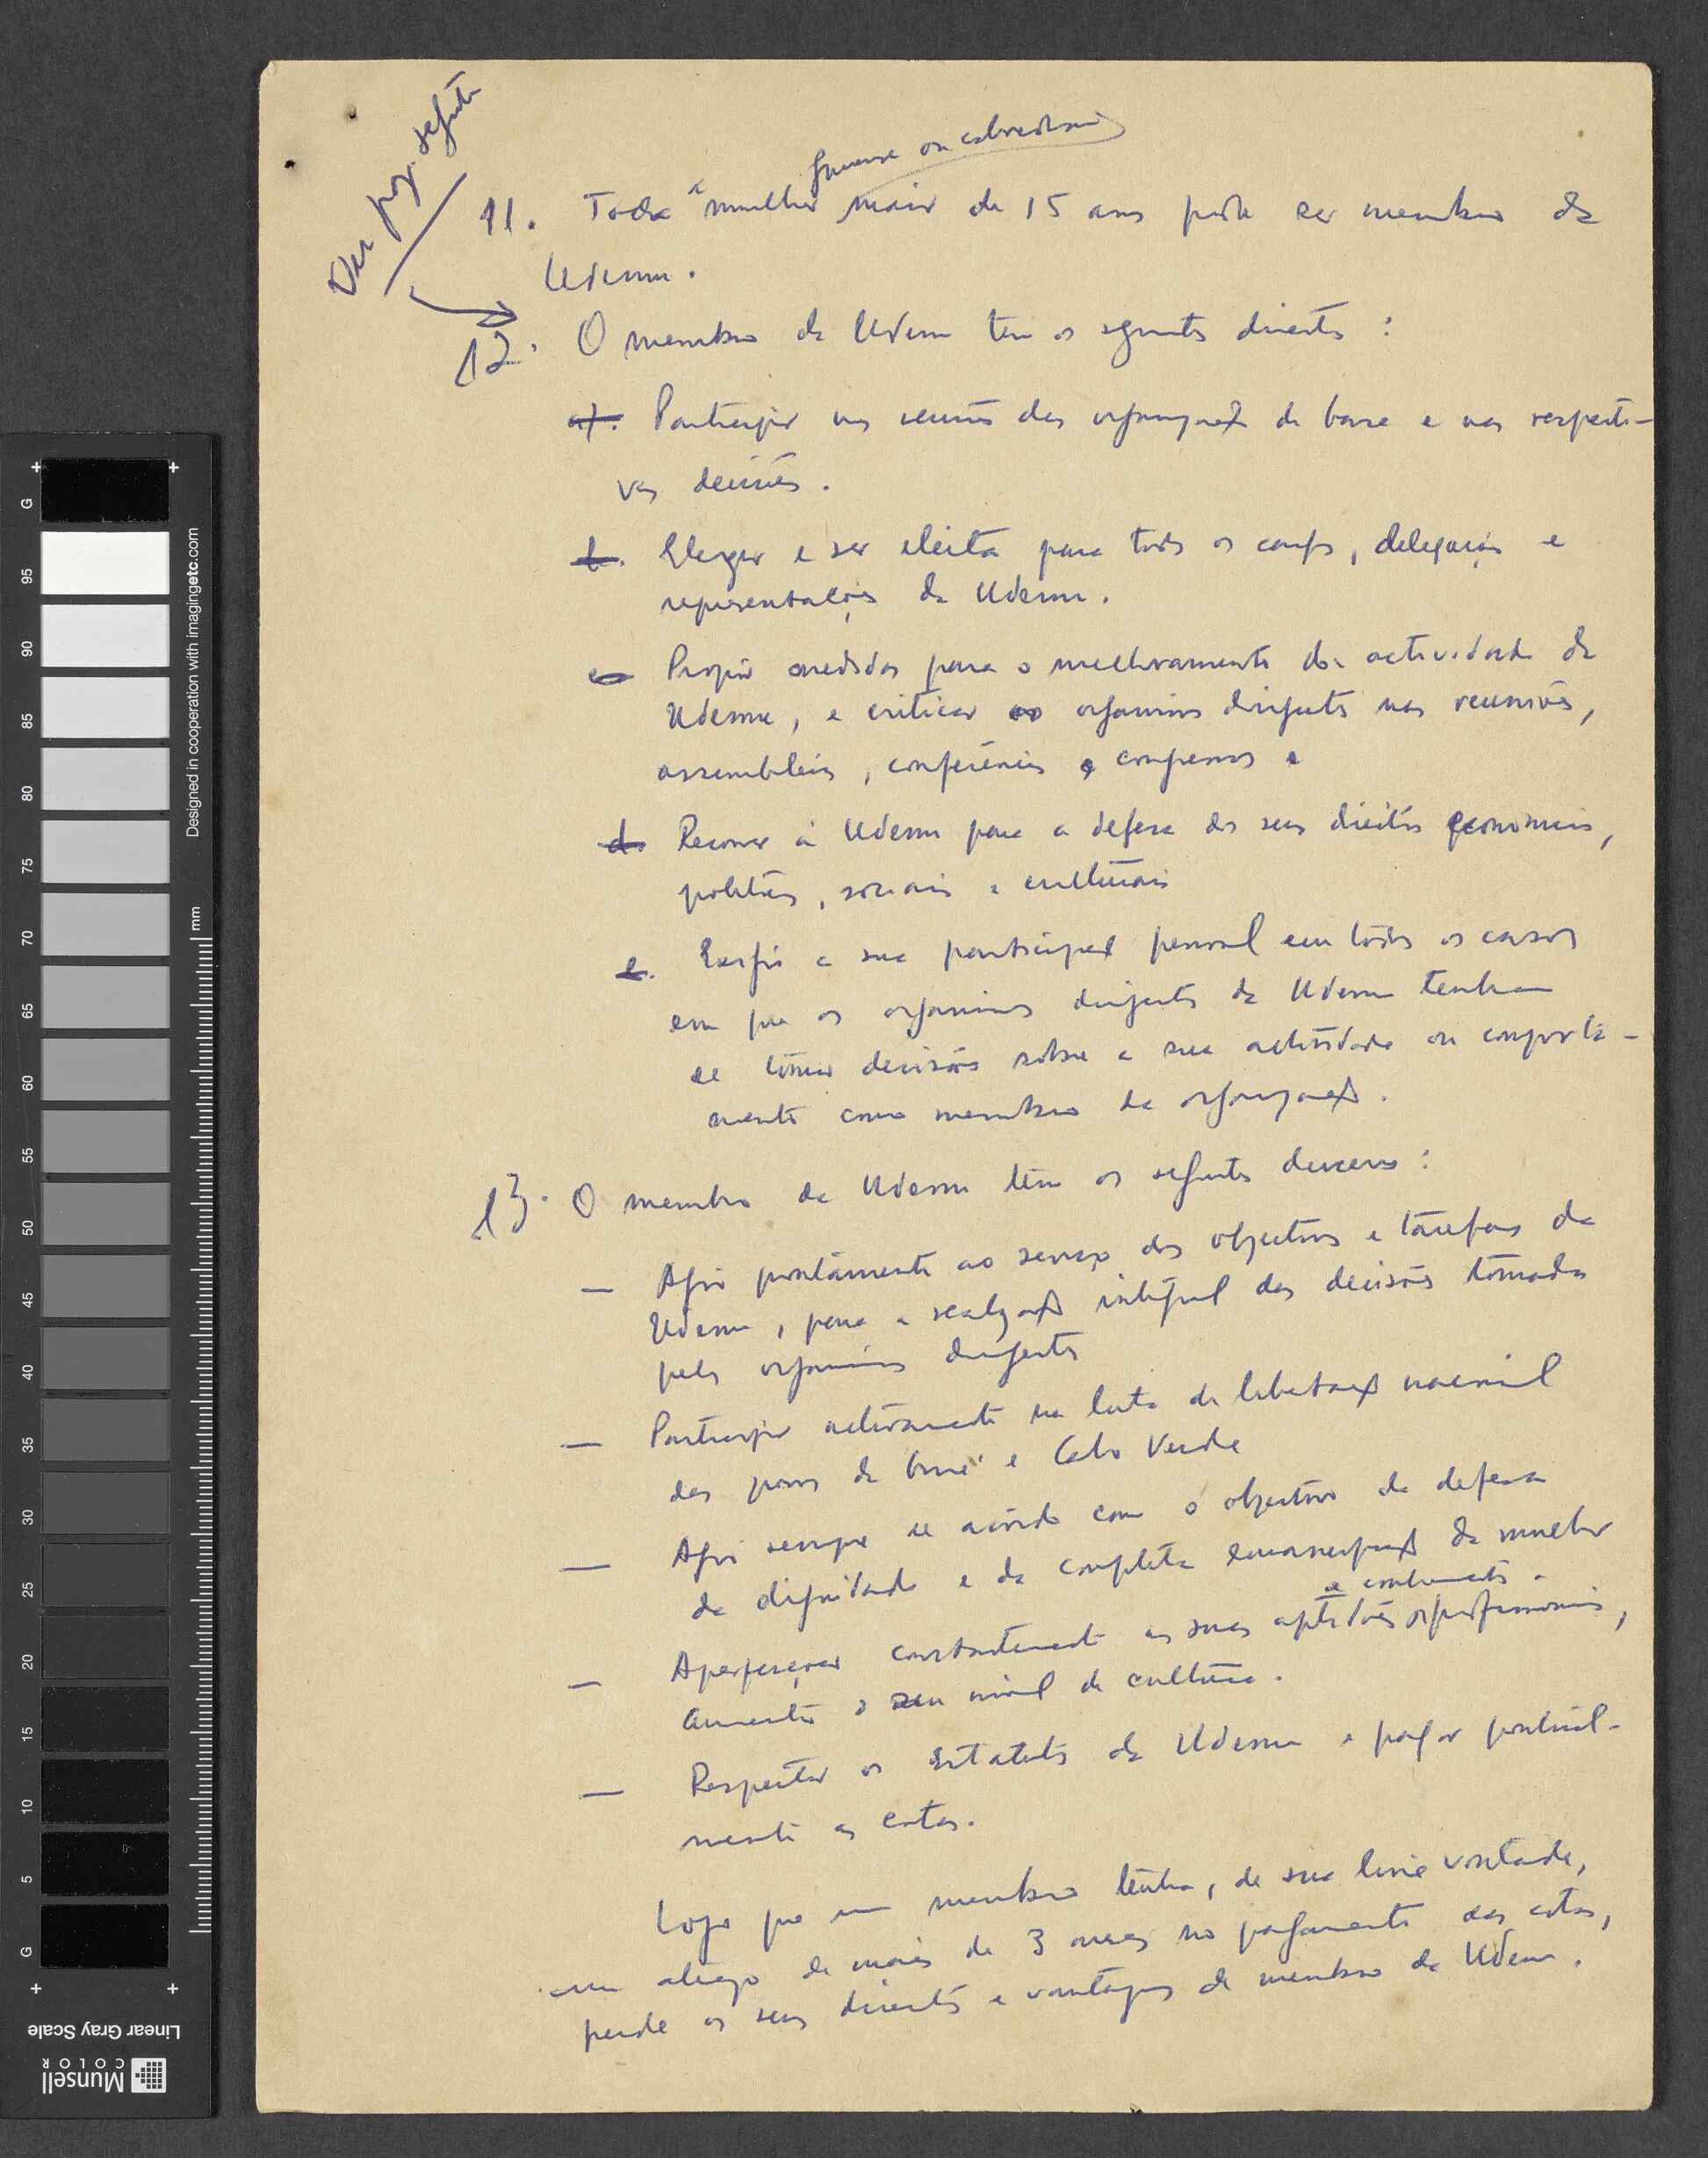 Ver pag. seguinte
guineense ou caboverdiana
11. Toda a mulher maior de 15 anos pode ser membro da
Udemu.
12. O membro da Udemu tem os seguintes direitos :
a). Participar nas reuniões das organizações de base e nas respecti-
vas decisões.
b. Eleger e ser eleita para todos os cargos, delegações e
representações da Udemu.
c Propor medidas para o melhoramento da actividade da
Udemu, e criticar os organismos dirigentes nas reuniões,
assembleias, conferências e congressos
d. Recorrer à Udemu para a defesa dos seus direitos económicos,
políticos, sociais e culturais
e. Exigir a sua participação pessoal em todos os casos
em que os organismos dirigentes da Udemu tenham
de tomar decisões sobre a sua actividade ou comporta-
mento como membro da organização.
13. O membro da Udemu tem os seguintes deveres :
— Agir prontamente ao serviço dos objectivos e tarefas da
Udemu, para a realização integral das decisões tomadas
pelos organismos dirigentes
— Participar activamente na luta de libertação nacional
dos povos da Guiné e Cabo Verde
— Agir sempre de acordo com o objectivo da defesa
da dignidade e da completa emancipação da mulher
e conhecimentos
— Aperfeiçoar constantemente as suas aptidões profissionais,
aumentar o seu nível de cultura.
— Respeitar os Estatutos da Udemu e pagar pontual-
mente as cotas.
Logo que um membro tenha, de sua livre vontade,
um atraso de mais de 3 meses no pagamento das cotas,
perde os seus direitos e vantagens de membro da Udemu.
G
95
90
85
80
75
70
65
60
55
50
45
40
35
30
25
20
15
10
5
G
mm
Designed in cooperation with imagingetc.com
Linear Gray Scale
Munsell
COLOR